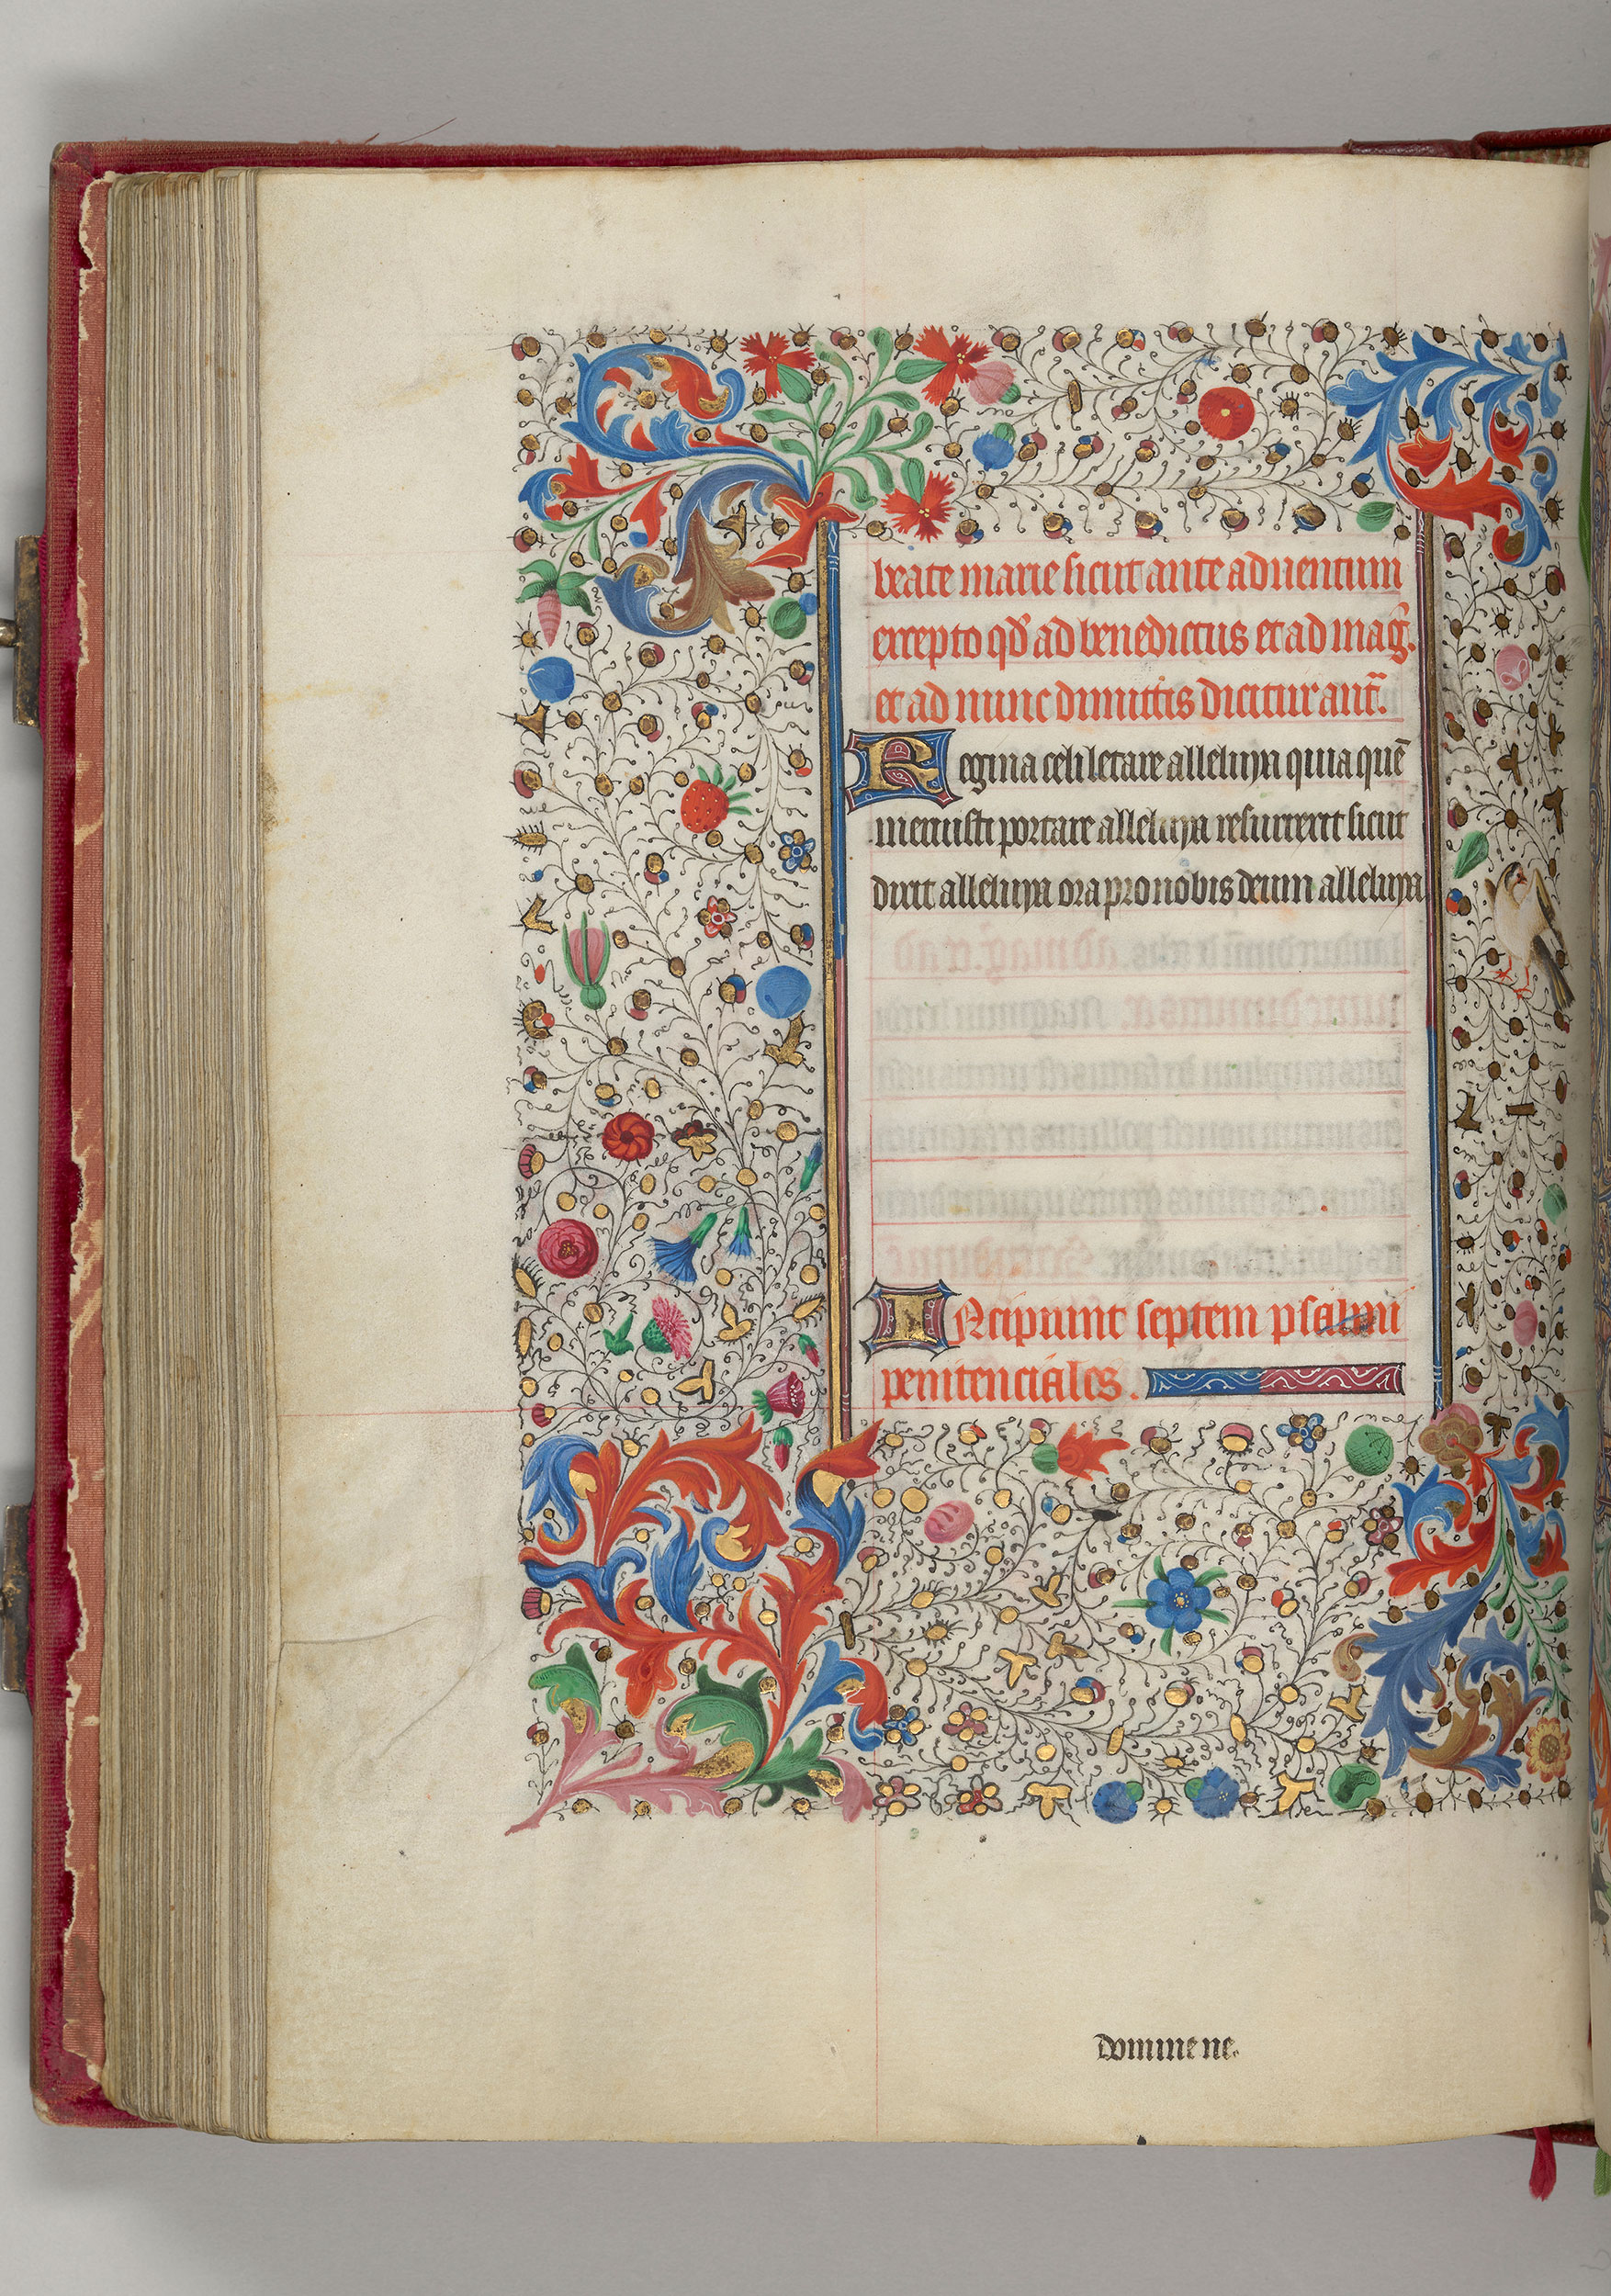 beate marie sicut ante aduentum
excepto qd̄ ad benedictus et ad maḡ.
et ad nunc dimittis dicitur ant̄.
Regina celi letare alleluya quia quē
meruisti portare alleluya resurrexit sicut
dixit alleluya ora pro nobis deum alleluya
INcipiunt septem psalmi
penitenciales.
domine ne.